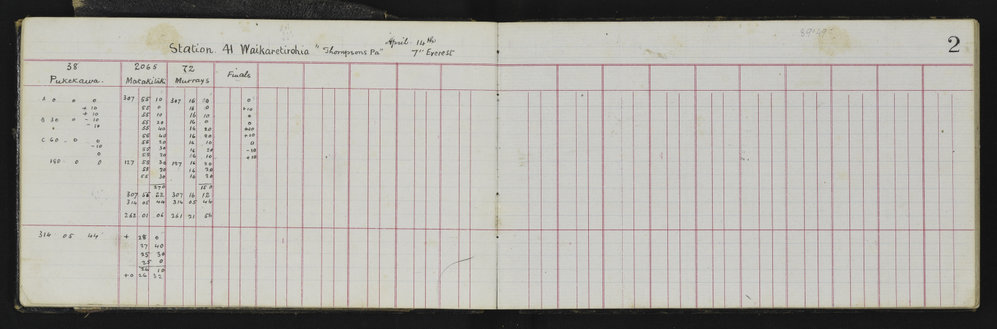 April 14th
Station 41 Waikaretirohia "Thompsons Pa" 7" Everest
2
38 2065 72
Pukekawa. Matakitik Murrays Finals
A 0 0 0 307 55 10 307 16 10 0
+ 10 55 0 16 0 +10
+ 10 55 10 16 10 0
B 30 0 - 10 55 20 16 0 0
- 10 55 40 16 20 +20
55 40 16 20 +20
C 60 - 0 - 0 55 20 16 10 0
- 10 55 30 16 20 -10
0 55 20 16 10 +10
180 0 0 127 55 30 127 16 20
55 20 16 20
55 30 16 20
270 150
307 55 22 307 16 12
314 05 44 314 05 44
262 01 06 261 21 56
314 05 44 + 28 0
27 40
25 30
25 0
26 10
+0 26 32